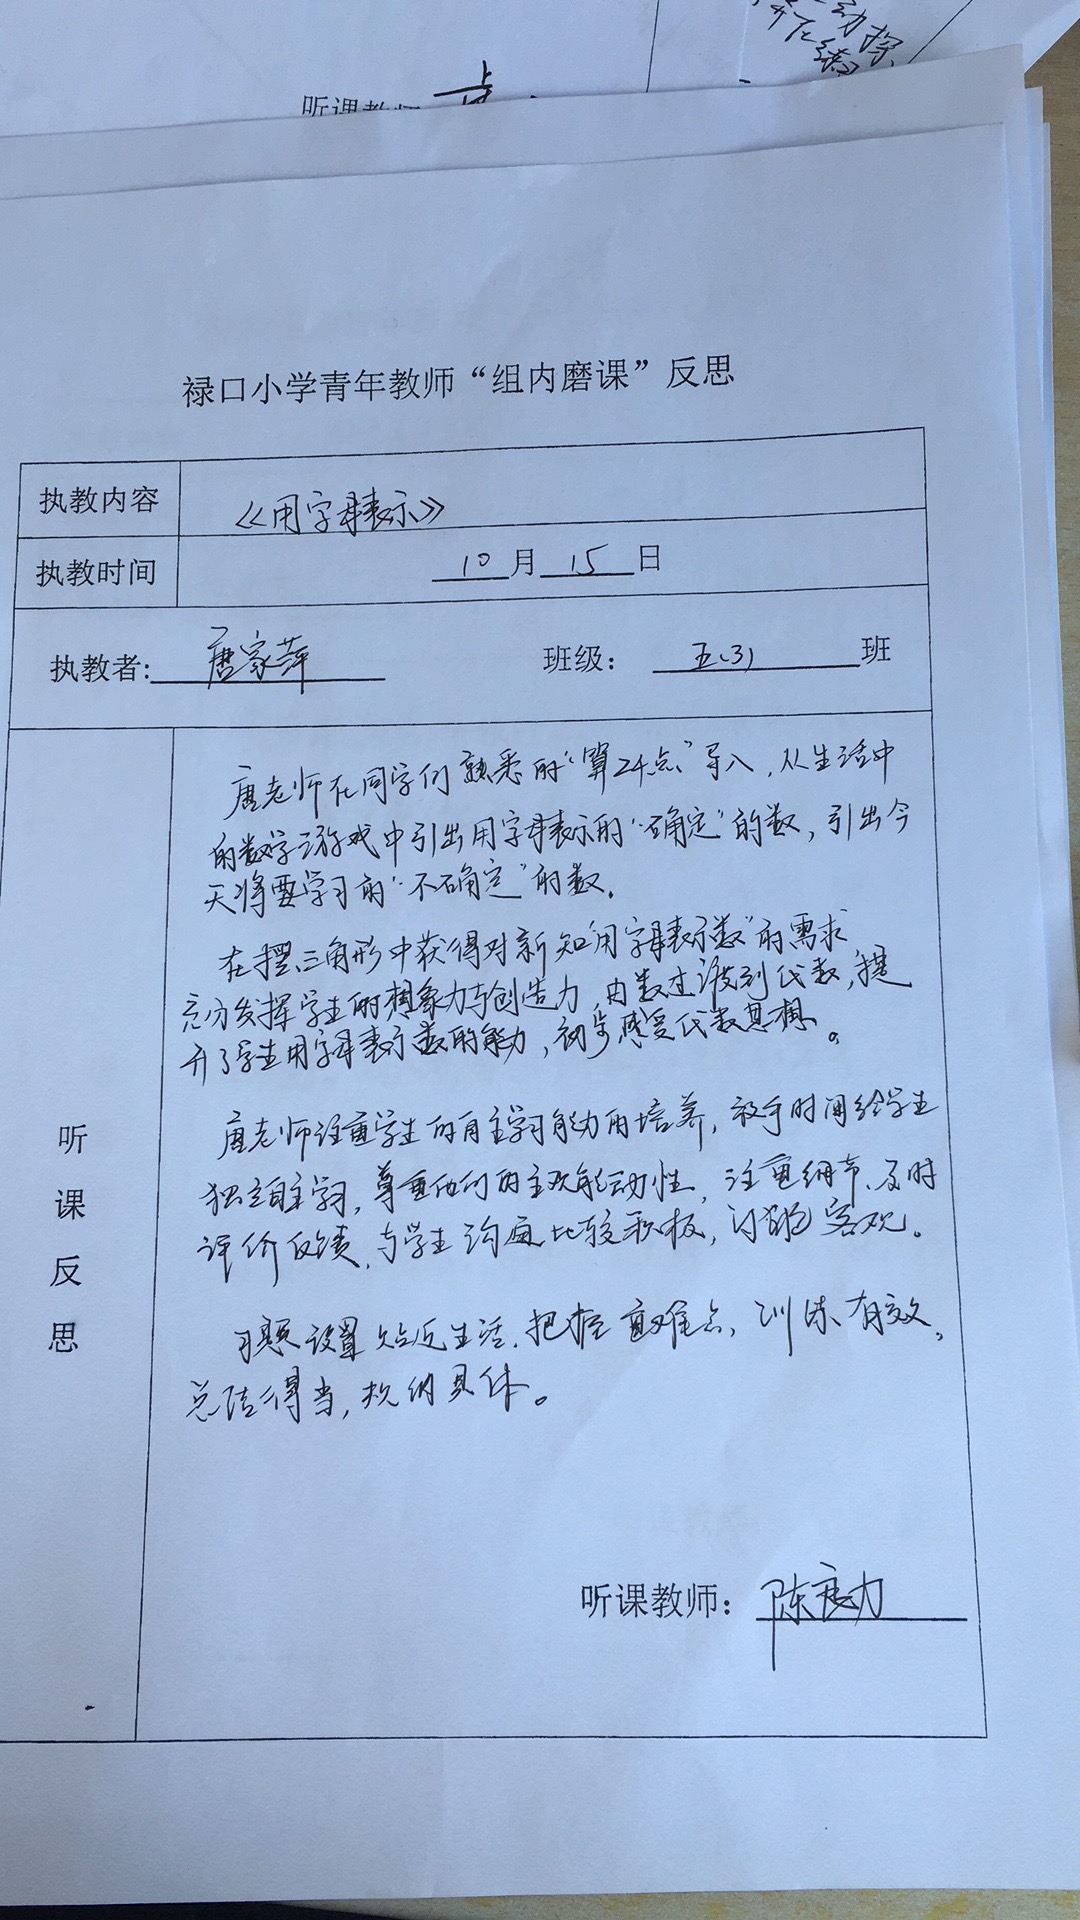 听课教师
禄口小学青年教师“组内磨课”反思
执教内容 《用字母表示》
执教时间 10月15日
执教者: 唐家萍 班级: 五(3) 班
唐老师在同学们熟悉的“算24点”导入,从生活中
的数学游戏中引出用字母表示的“确定”的数,引出今
天将要学习的“不确定”的数.
在摆三角形中获得对新知“用字母表示数”的需求,
充分发挥学生的想象力与创造力,由数过渡到代数,提
升了学生用字母表示数的能力,初步感受代数思想。
唐老师注重学生的自主学习能力的培养,放手时间给学生
独立自主学习,尊重他们的主观能动性,注重细节、及时
评价反馈,与学生沟通比较积极,客观。
习题设置贴近生活,把握重难点,训练有效,
总结得当,具体。
听课反思
听课教师: 陈良力